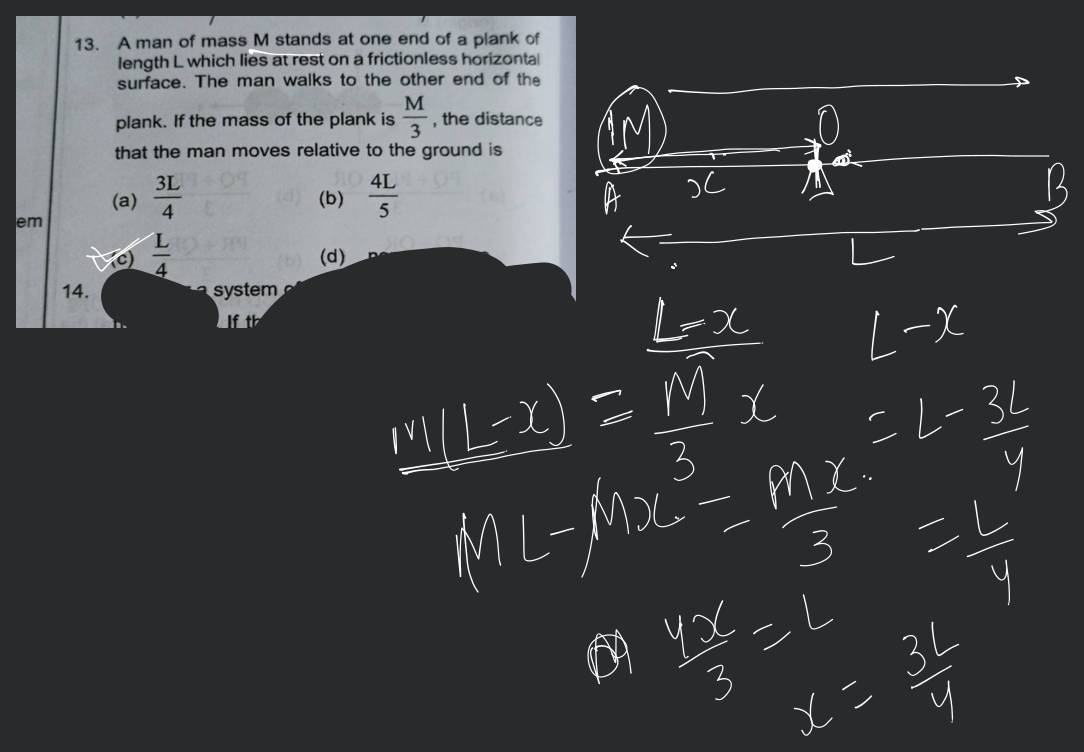 13. A man of mass M stands at one end of a plank of
length L which lies at rest on a frictionless horizontal
surface. The man walks to the other end of the
plank. If the mass of the plank is M/3, the distance
that the man moves relative to the ground is
(a) 3L/4 (b) 4L/5
em
(c) L/4 (d)
14. a system
If
M O
A x B
L
L-x L-x
M(L-x) = M/3 x = L - 3L/4
ML - Mx = Mx/3 = L/4
4x/3 = L
x = 3L/4